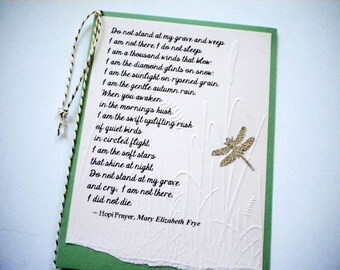 Do not stand at my grave and weep.
I am not there. I do not sleep.
I am a thousand winds that blow.
I am the diamond glints on snow.
I am the sunlight on ripened grain.
I am the gentle autumn rain.
When you awaken
in the morning's hush
I am the swift uplifting rush
of quiet birds
in circled flight.
I am the soft stars
that shine at night.
Do not stand at my grave
and cry, I am not there.
I did not die.
~ Hopi Prayer, Mary Elizabeth Frye